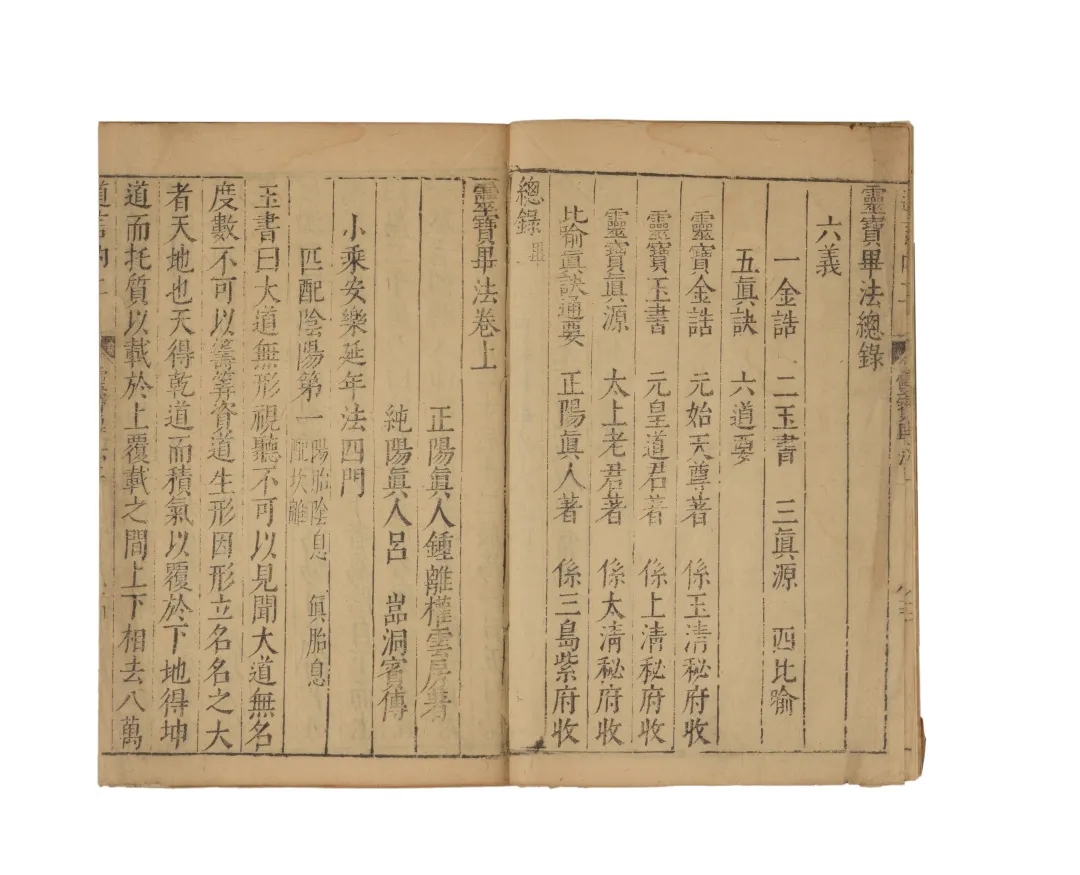 靈寶畢法總錄
六義
一金誥 二玉書 三眞源 四比喻
五眞訣 六道要
靈寶金誥 元始天尊著 係玉清秘府收
靈寶玉書 元皇道君著 係上淸秘府收
靈寶眞源 太上老君著 係太淸秘府收
比喻眞訣通要 正陽眞人著 係三島紫府收
總錄畢
靈寶畢法卷上
正陽眞人鍾離權雲房著
純陽眞人呂 嵒洞賓傳
小乘安樂延年法四門
匹配陰陽第一 陽胎陰息 眞胎息
配坎離
玉書曰大道無形視聽不可以見聞大道無名
度數不可以籌筭資道生形因形立名名之大
者天地也天得乾道而積氣以覆於下地得坤
道而托質以載於上覆載之間上下相去八萬